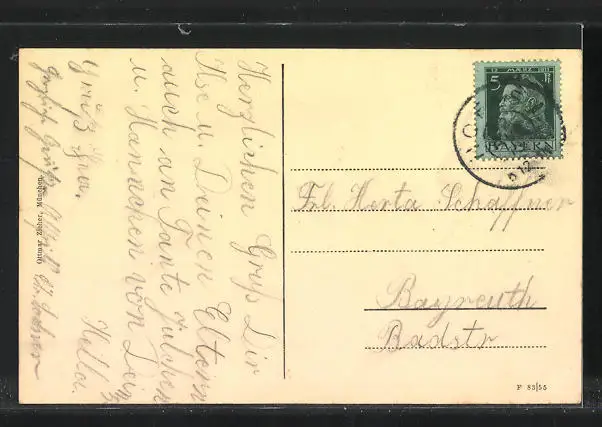 Herzlichen Gruß Dir
Ilse u. Deinen Eltern
auch an Tante Julchen
u. Hannchen von Dein
Hella.
Gruß
Ottmar Zieher, München.
12. MÄRZ 1911
5 Pf
BAYERN
Frl. Herta Schaffner
Bayreuth
Badstr
F 83/55